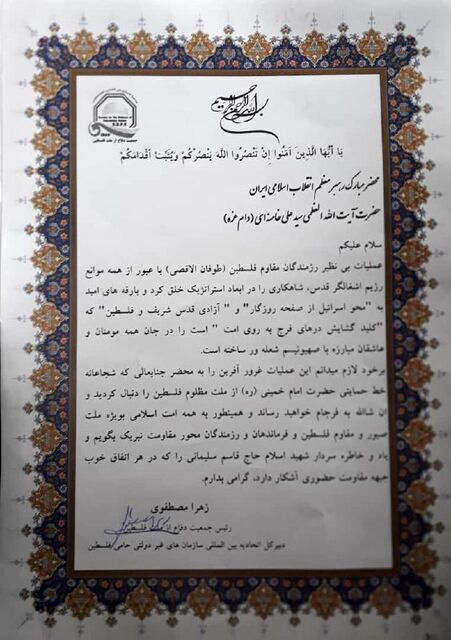 Society on the Defence of Palestinian Nation
S.D.P.N
جمعیت دفاع از ملت فلسطین
بسم الله الرحمن الرحیم
يَا أَيُّهَا الَّذِينَ آمَنُوا إِنْ تَنْصُرُوا اللَّهَ يَنْصُرْكُمْ وَيُثَبِّتْ أَقْدَامَكُمْ
محضر مبارک رهبر معظم انقلاب اسلامی ایران
حضرت آیت الله العظمی سید علی خامنه ای (دام عزه)
سلام علیکم
عملیات بی نظیر رزمندگان مقاوم فلسطین (طوفان الاقصی) با عبور از همه موانع
رژیم اشغالگر قدس، شاهکاری را در ابعاد استراتژیک خلق کرد و بارقه های امید
به "محو اسرائیل از صفحه روزگار" و " آزادی قدس شریف و فلسطین" که
"کلید گشایش درهای فرج به روی امت " است را در جان همه مومنان و
عاشقان مبارزه با صهیونیسم شعله ور ساخته است.
برخود لازم میدانم این عملیات غرور آفرین را به محضر جنابعالی که شجاعانه
خط حمایتی حضرت امام خمینی (ره) از ملت مظلوم فلسطین را دنبال کردید و
ان شالله به فرجام خواهید رساند و همینطور به همه امت اسلامی بویژه ملت
صبور و مقاوم فلسطین و فرماندهان و رزمندگان محور مقاومت تبریک بگویم و
یاد و خاطره سردار شهید اسلام حاج قاسم سلیمانی را که در هر اتفاق خوب
جبهه مقاومت حضوری آشکار دارد، گرامی بدارم.
زهرا مصطفوی
رئیس جمعیت دفاع از ملت فلسطین
دبیرکل اتحادیه بین المللی سازمان های غیر دولتی حامی فلسطین